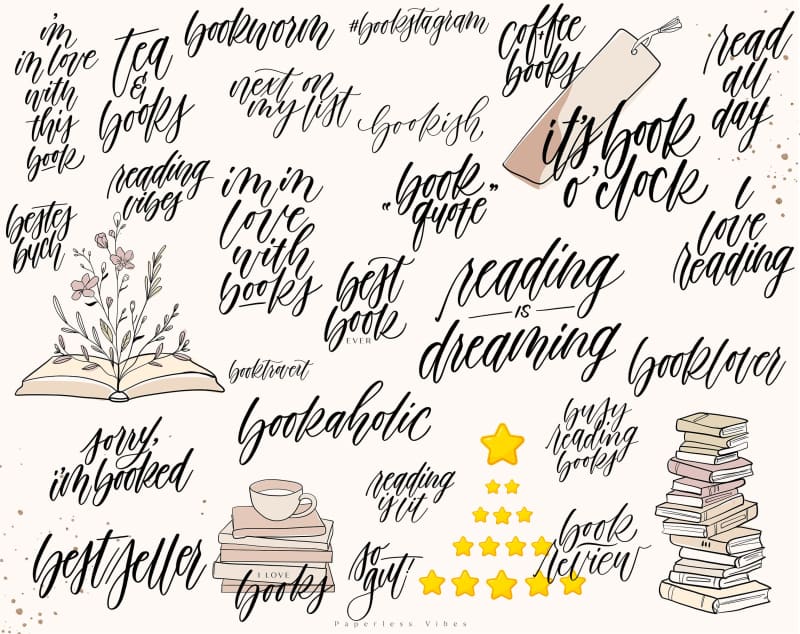 i'm
in love
with
this
book
tea
&
books
bookworm
#bookstagram
coffee
+
books
read
all
day
next on
my list
bookish
it's book
o'clock
reading
vibes
i'm in
love
with
books
"book
quote"
i
love
reading
bestes
buch
best
book
EVER
reading
IS
dreaming
booktrovert
booklover
bookaholic
sorry,
i'm booked
reading
is lit
busy
reading
books
bestseller
I LOVE
books
so
gut!
book
review
Paperless Vibes